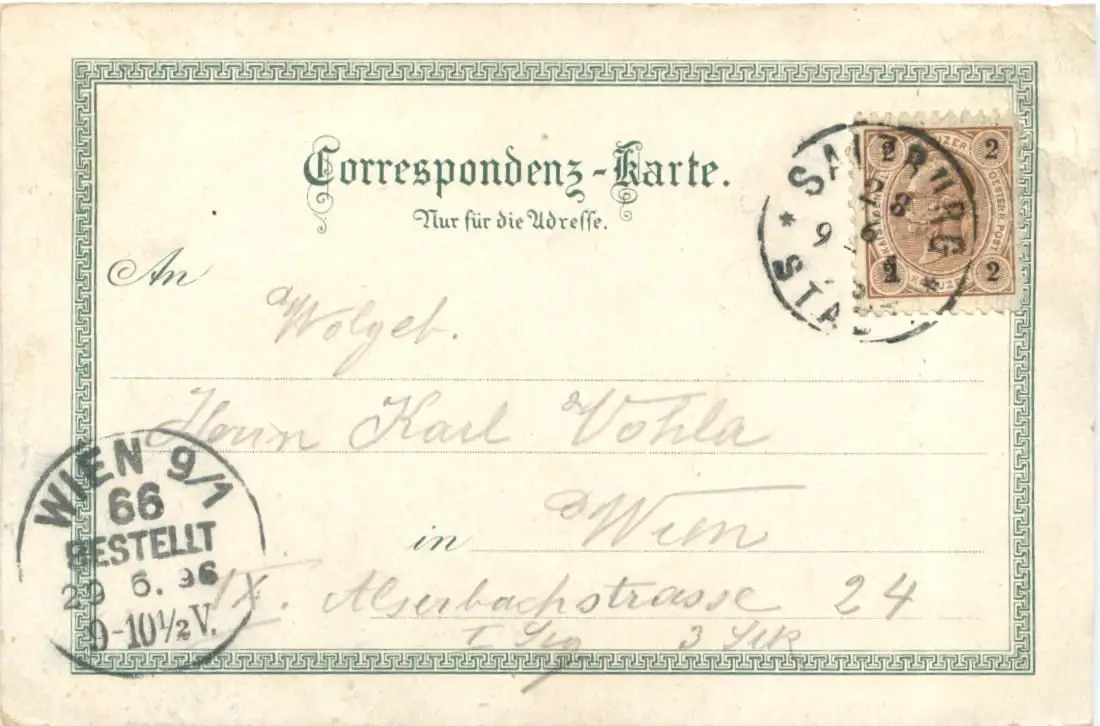 Correspondenz-Karte.
Nur für die Adresse.
SALZBURG
STADT
2 KREUZER 2
OESTERR. POST
2 KREUZER 2
An
Wolgeb.
Herrn Karl Vohla
in Wien
IX. Alserbachstrasse 24
I Stg 3 Stk
WIEN 9/1
66
BESTELLT
29 6. 96
9-10½V.